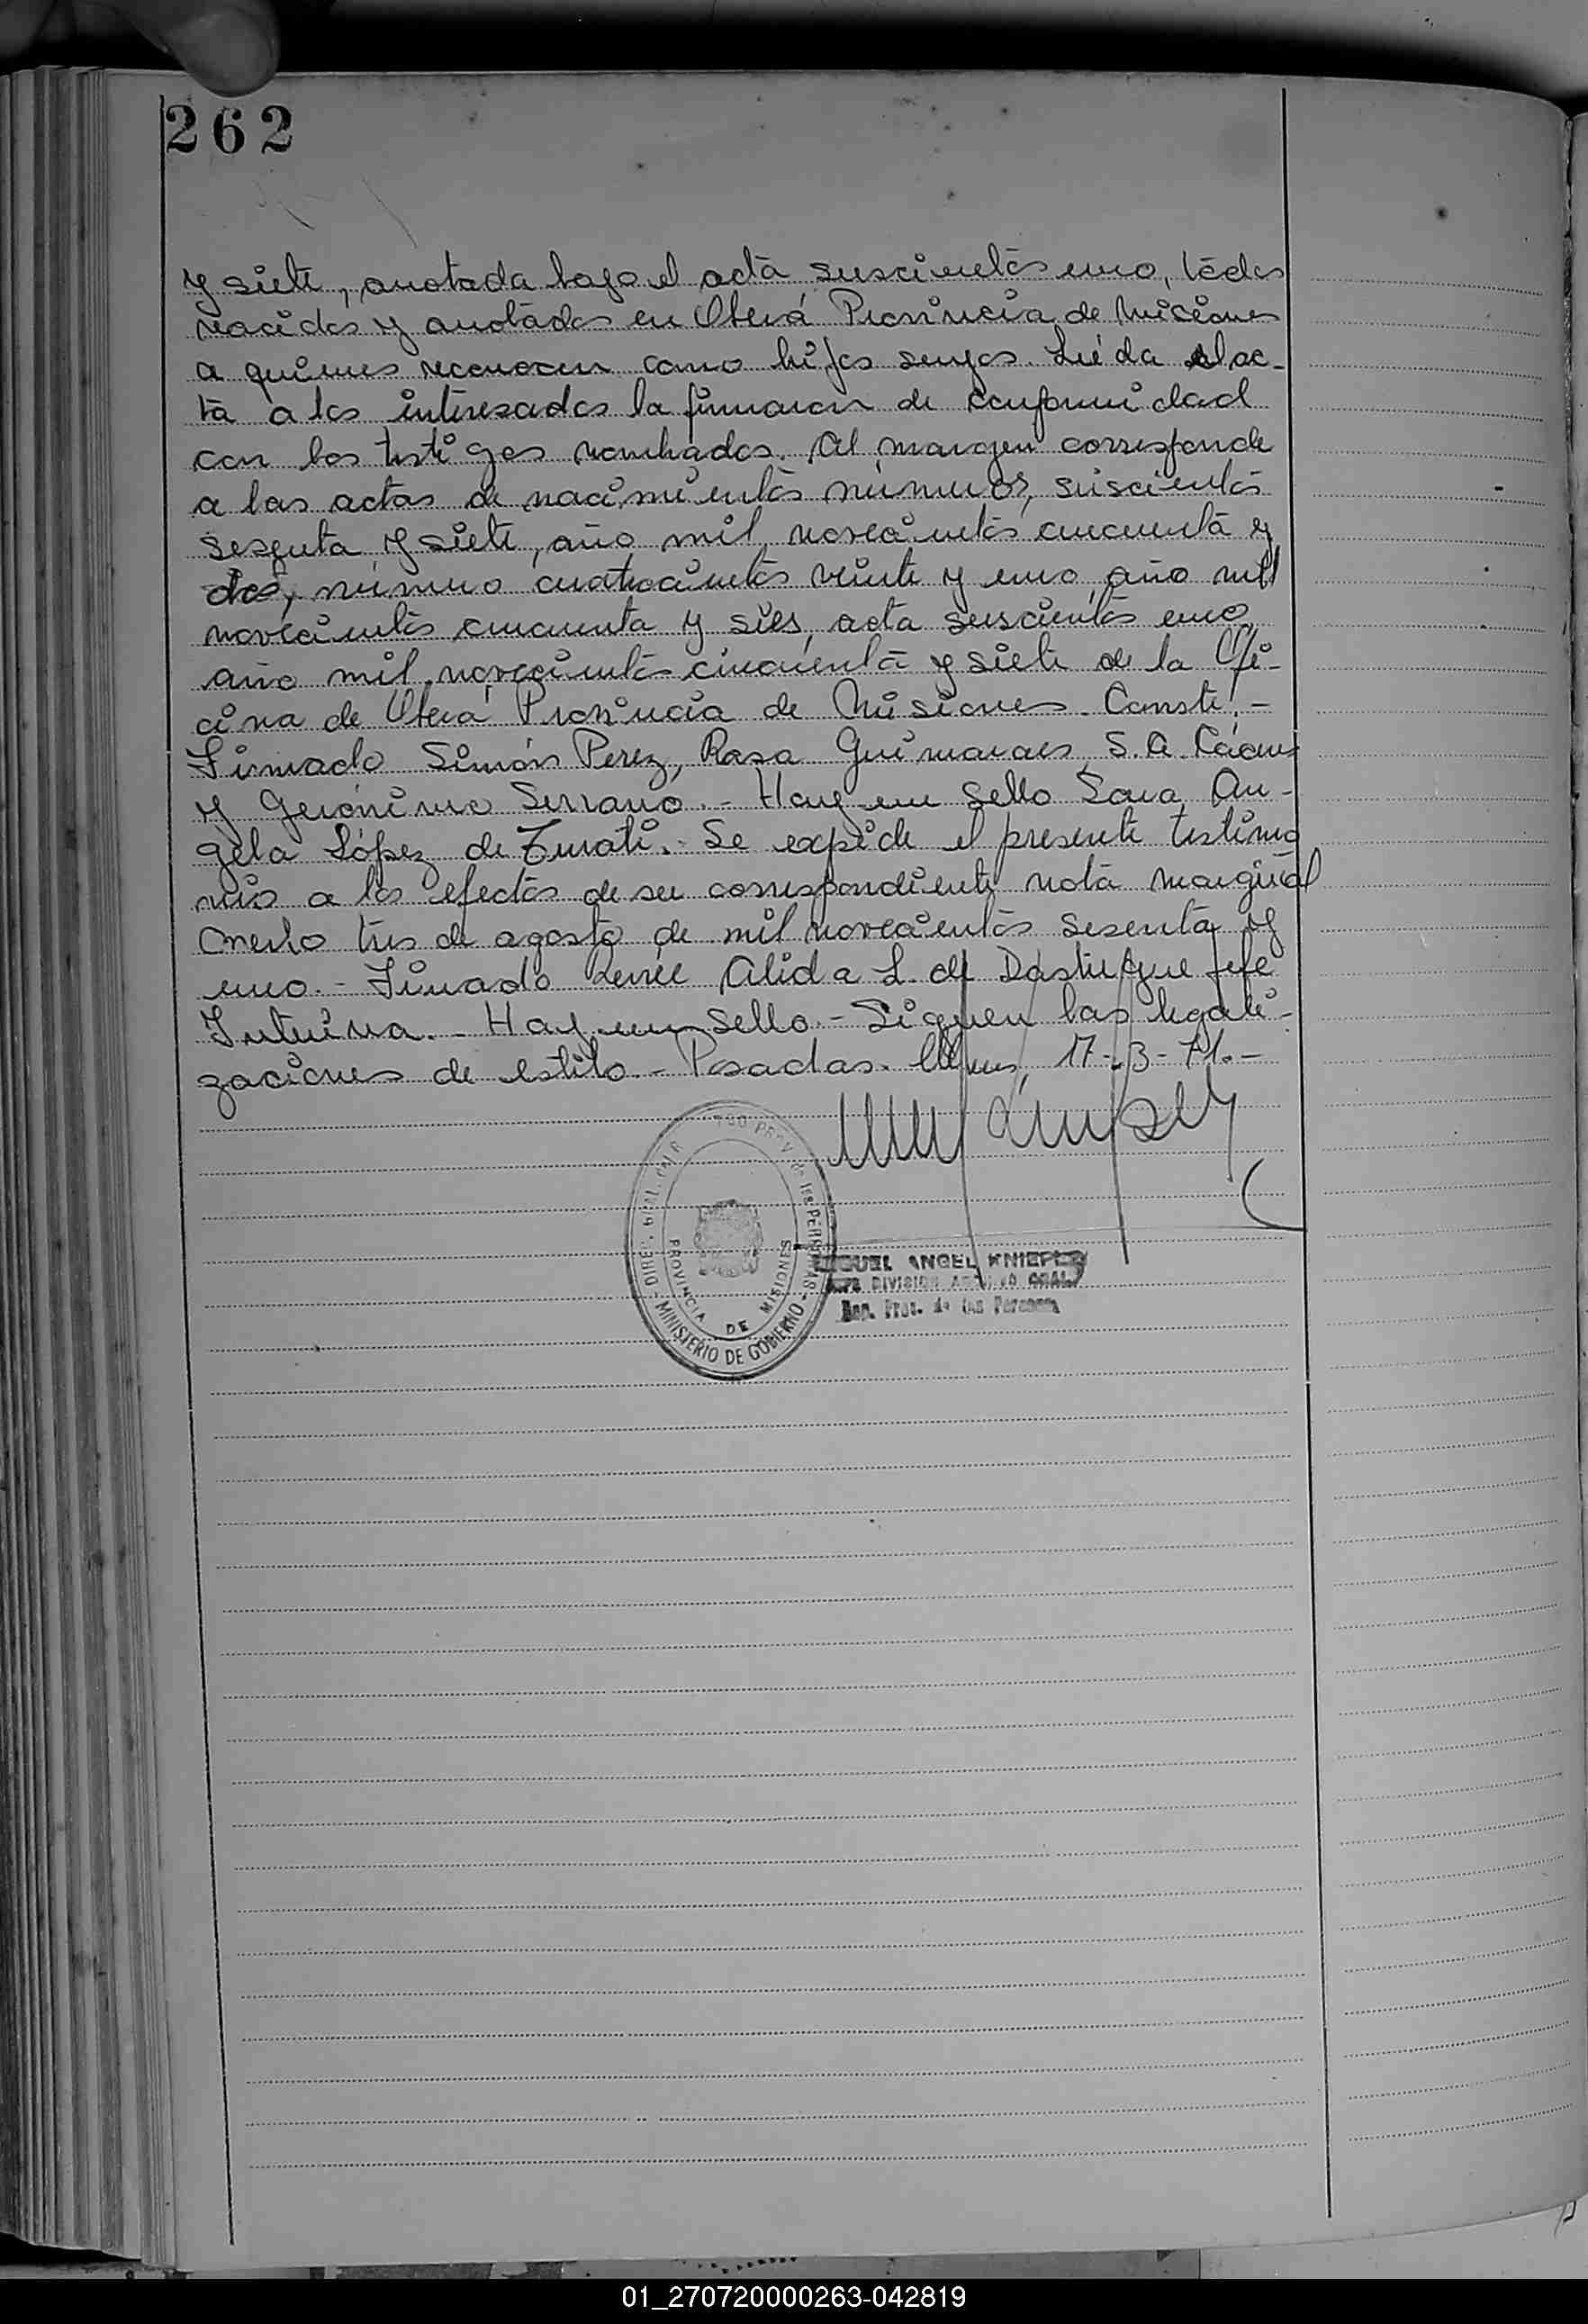 262
y siete, anotada bajo el acta suscientos uno, todos
nacidos y anotados en Oberá Provincia de Misiones
a quienes reconocen como hijos suyos. Leída el ac-
ta a los interesados la firmaron de conformidad
con los testigos nombrados. Al margen corresponde
a las actas de nacimientos números, suscientos
sesenta y siete, año mil novecientos cincuenta y
dos, número cuatrocientos veinte y uno, año mil
novecientos cincuenta y seis, acta suscientos uno,
año mil novecientos cincuenta y siete de la Ofi-
cina de Oberá Provincia de Misiones. Conste.-
Firmado Simón Perez, Rosa Guimaraes, S. A.
y Gerónimo Serrano.- Hay un sello Sara An-
gela López de Turati.- Se expide el presente testimo
nio a los efectos de su correspondiente nota marginal
tres de agosto de mil novecientos sesenta y
uno.- Firmado Renée Alida L. de Dastugue Jefe
Interina.- Hay un sello.- Siguen las legali-
zaciones de estilo.- Posadas. Mnes, 17-3-71.-
PROVINCIA DE MISIONES
MINISTERIO DE GOBIERNO
MIGUEL ANGEL KNIEPLE
JEFE DIVISION ARCHIVO GRAL.
Reg. Prov. de las Personas
01_270720000263-042819